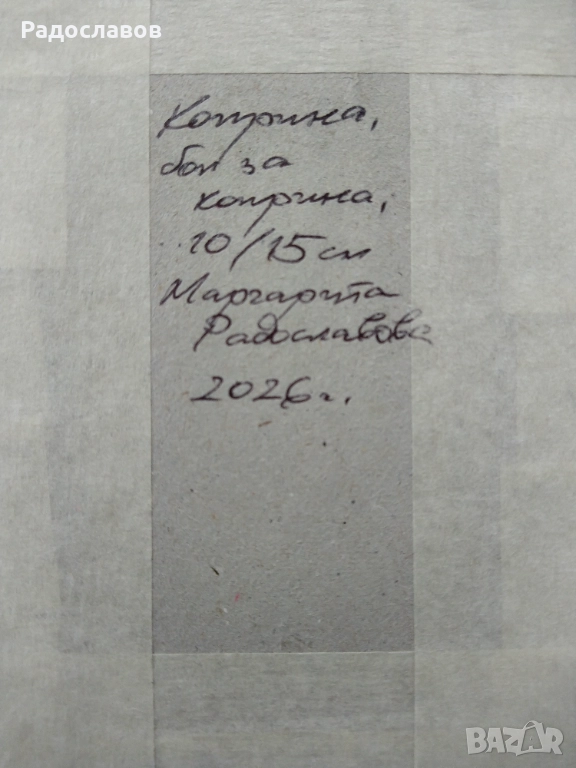 Радославов
Коприна,
бои за
коприна,
10/15 см
Маргарита
Радославова
2026 г.
BAZAR